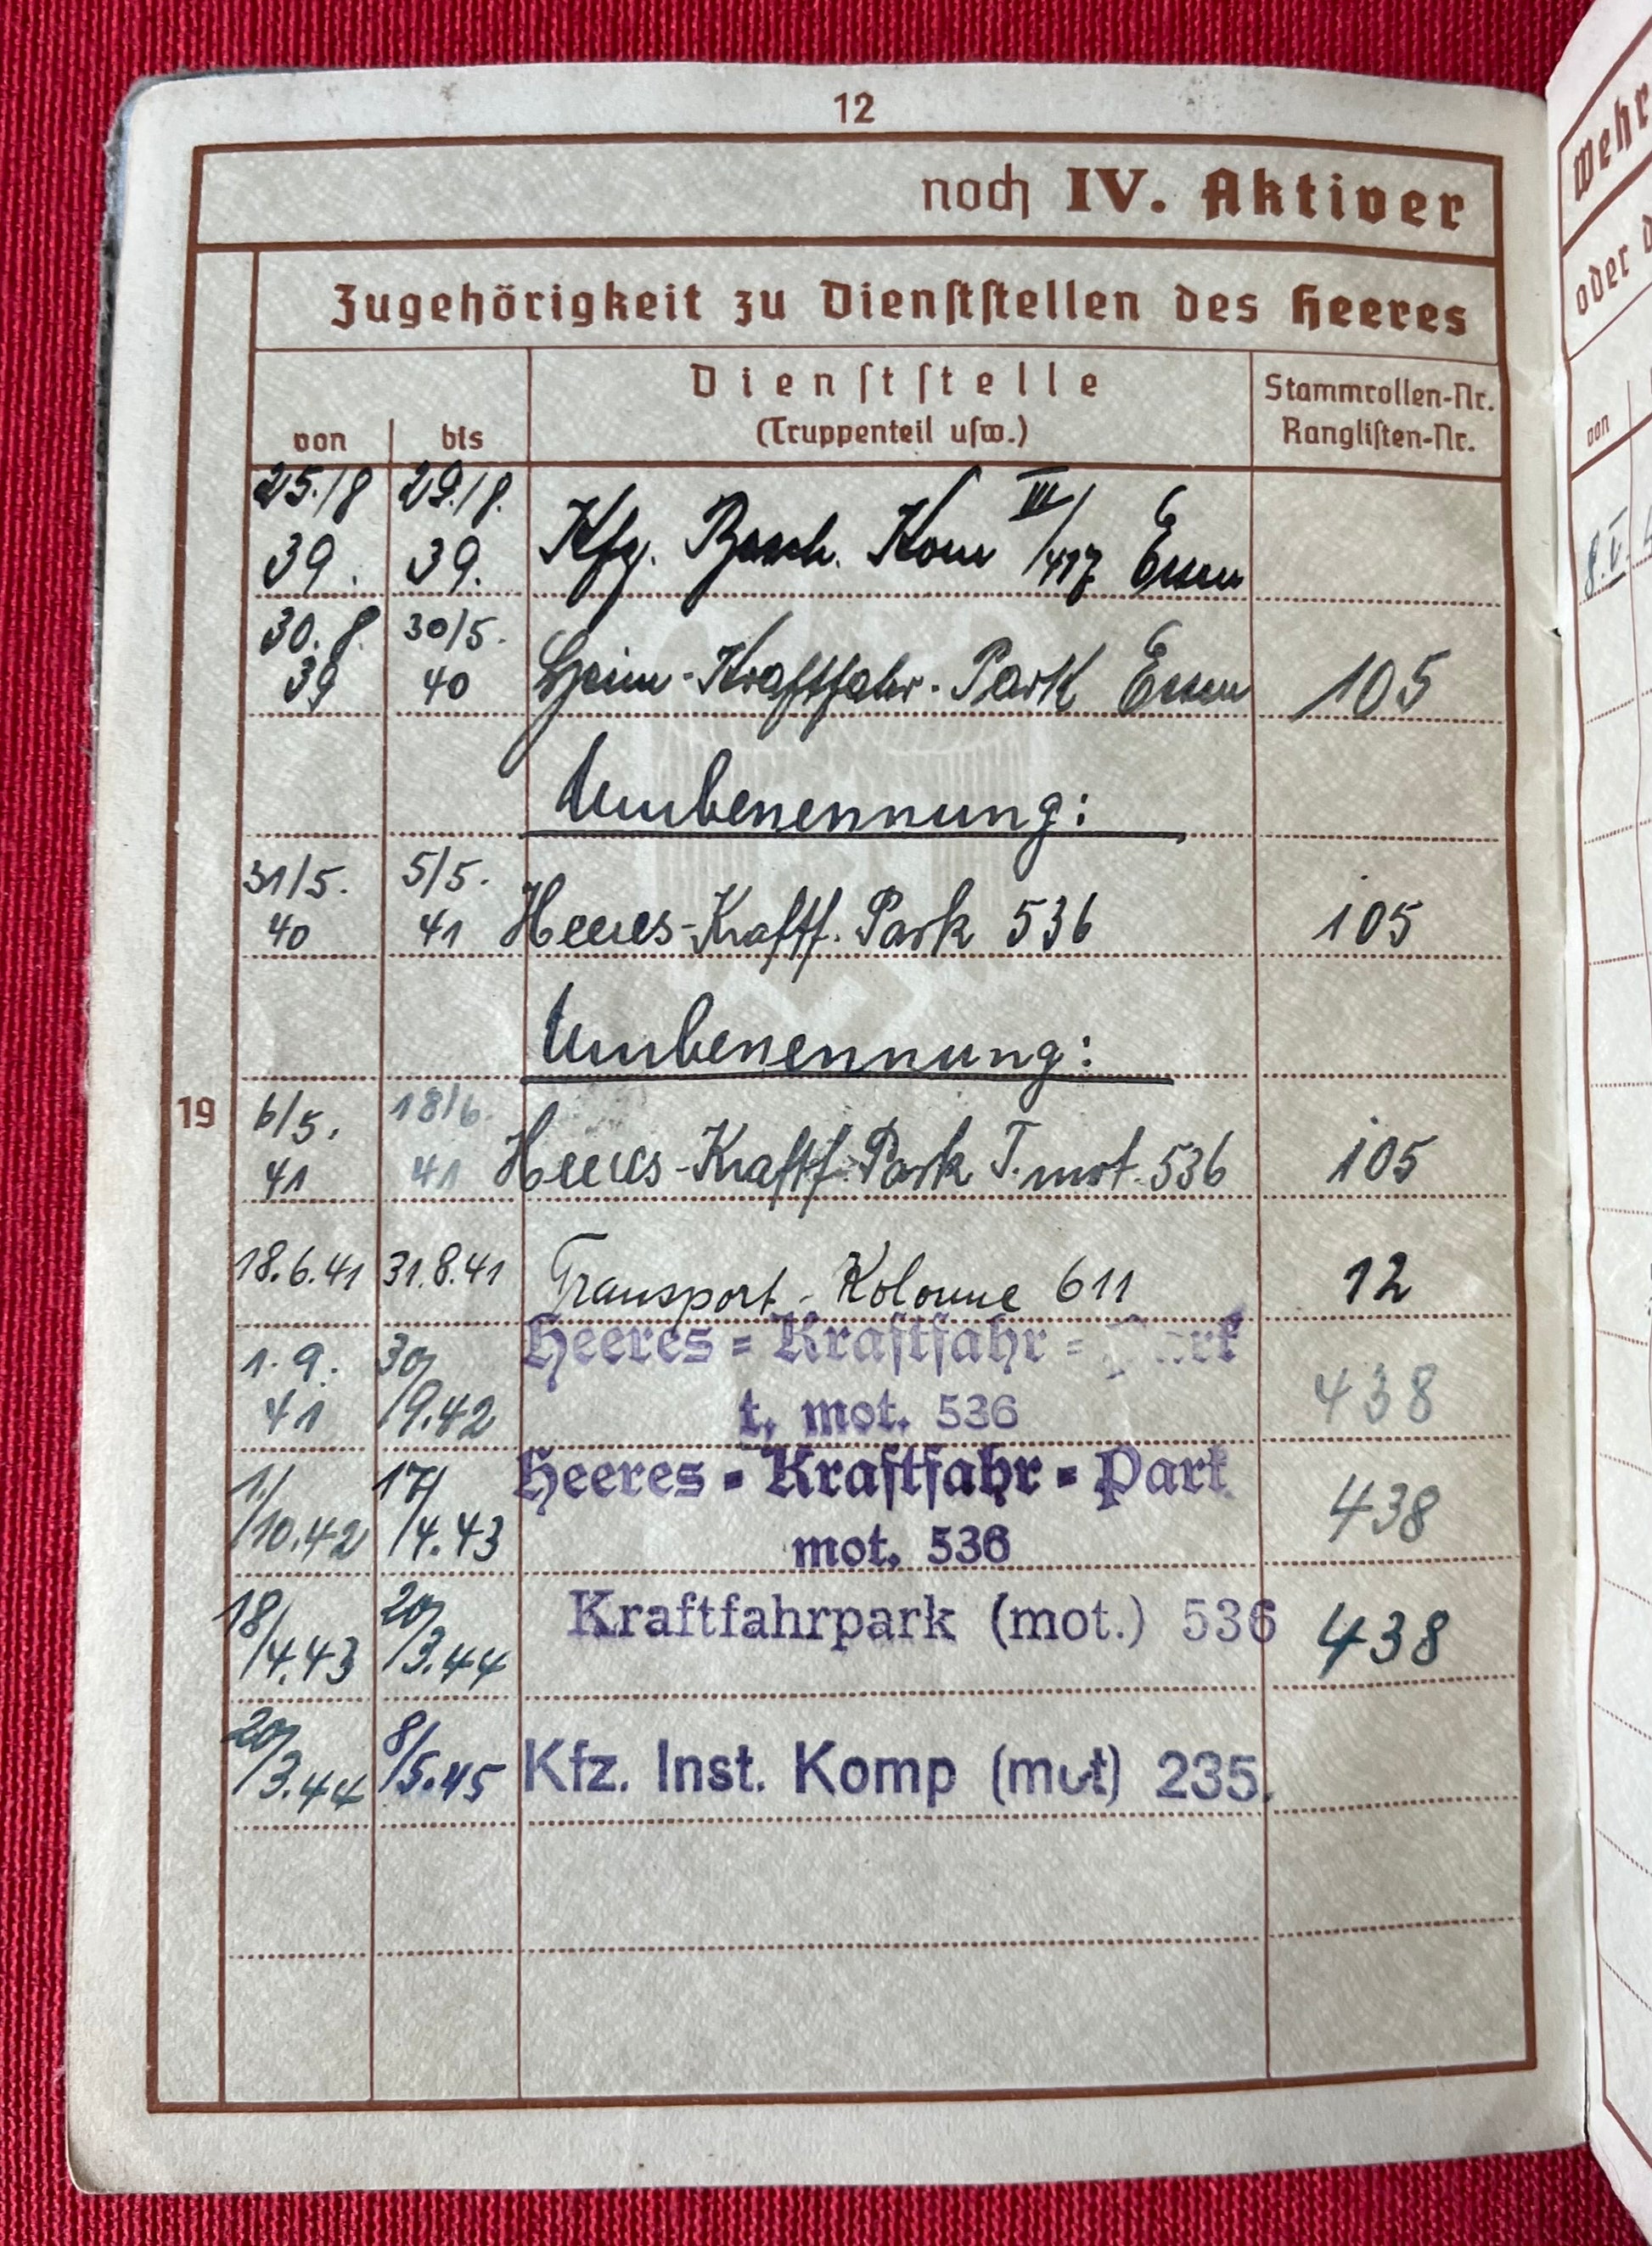 12
noch IV. Aktiver
Zugehörigkeit zu Dienststellen des Heeres
von bis Dienststelle (Truppenteil usw.) Stammrollen-Nr. Ranglisten-Nr.
25./8 39. 29./8. 39. Kfz. Kom VI/ Essen
30. 8. 39 30/5. 40 Heim-Kraftfahr-Park Essen 105
Umbenennung:
31/5. 40 5/5. 41 Heeres-Kraftf. Park 536 105
Umbenennung:
19 6/5. 41 18/6. 41 Heeres-Kraftf. Park T. mot. 536 105
18.6.41 31.8.41 Transport-Kolonne 611 12
1. 9. 41 30/9.42 Heeres-Kraftfahr-Park
t. mot. 536 438
1./10.42 17/4.43 Heeres-Kraftfahr-Park
mot. 536 438
18/4.43 20/3.44 Kraftfahrpark (mot.) 536 438
20/3.44 8/5.45 Kfz. Inst. Komp (mot) 235.
Wehr
oder d
von
8.V.